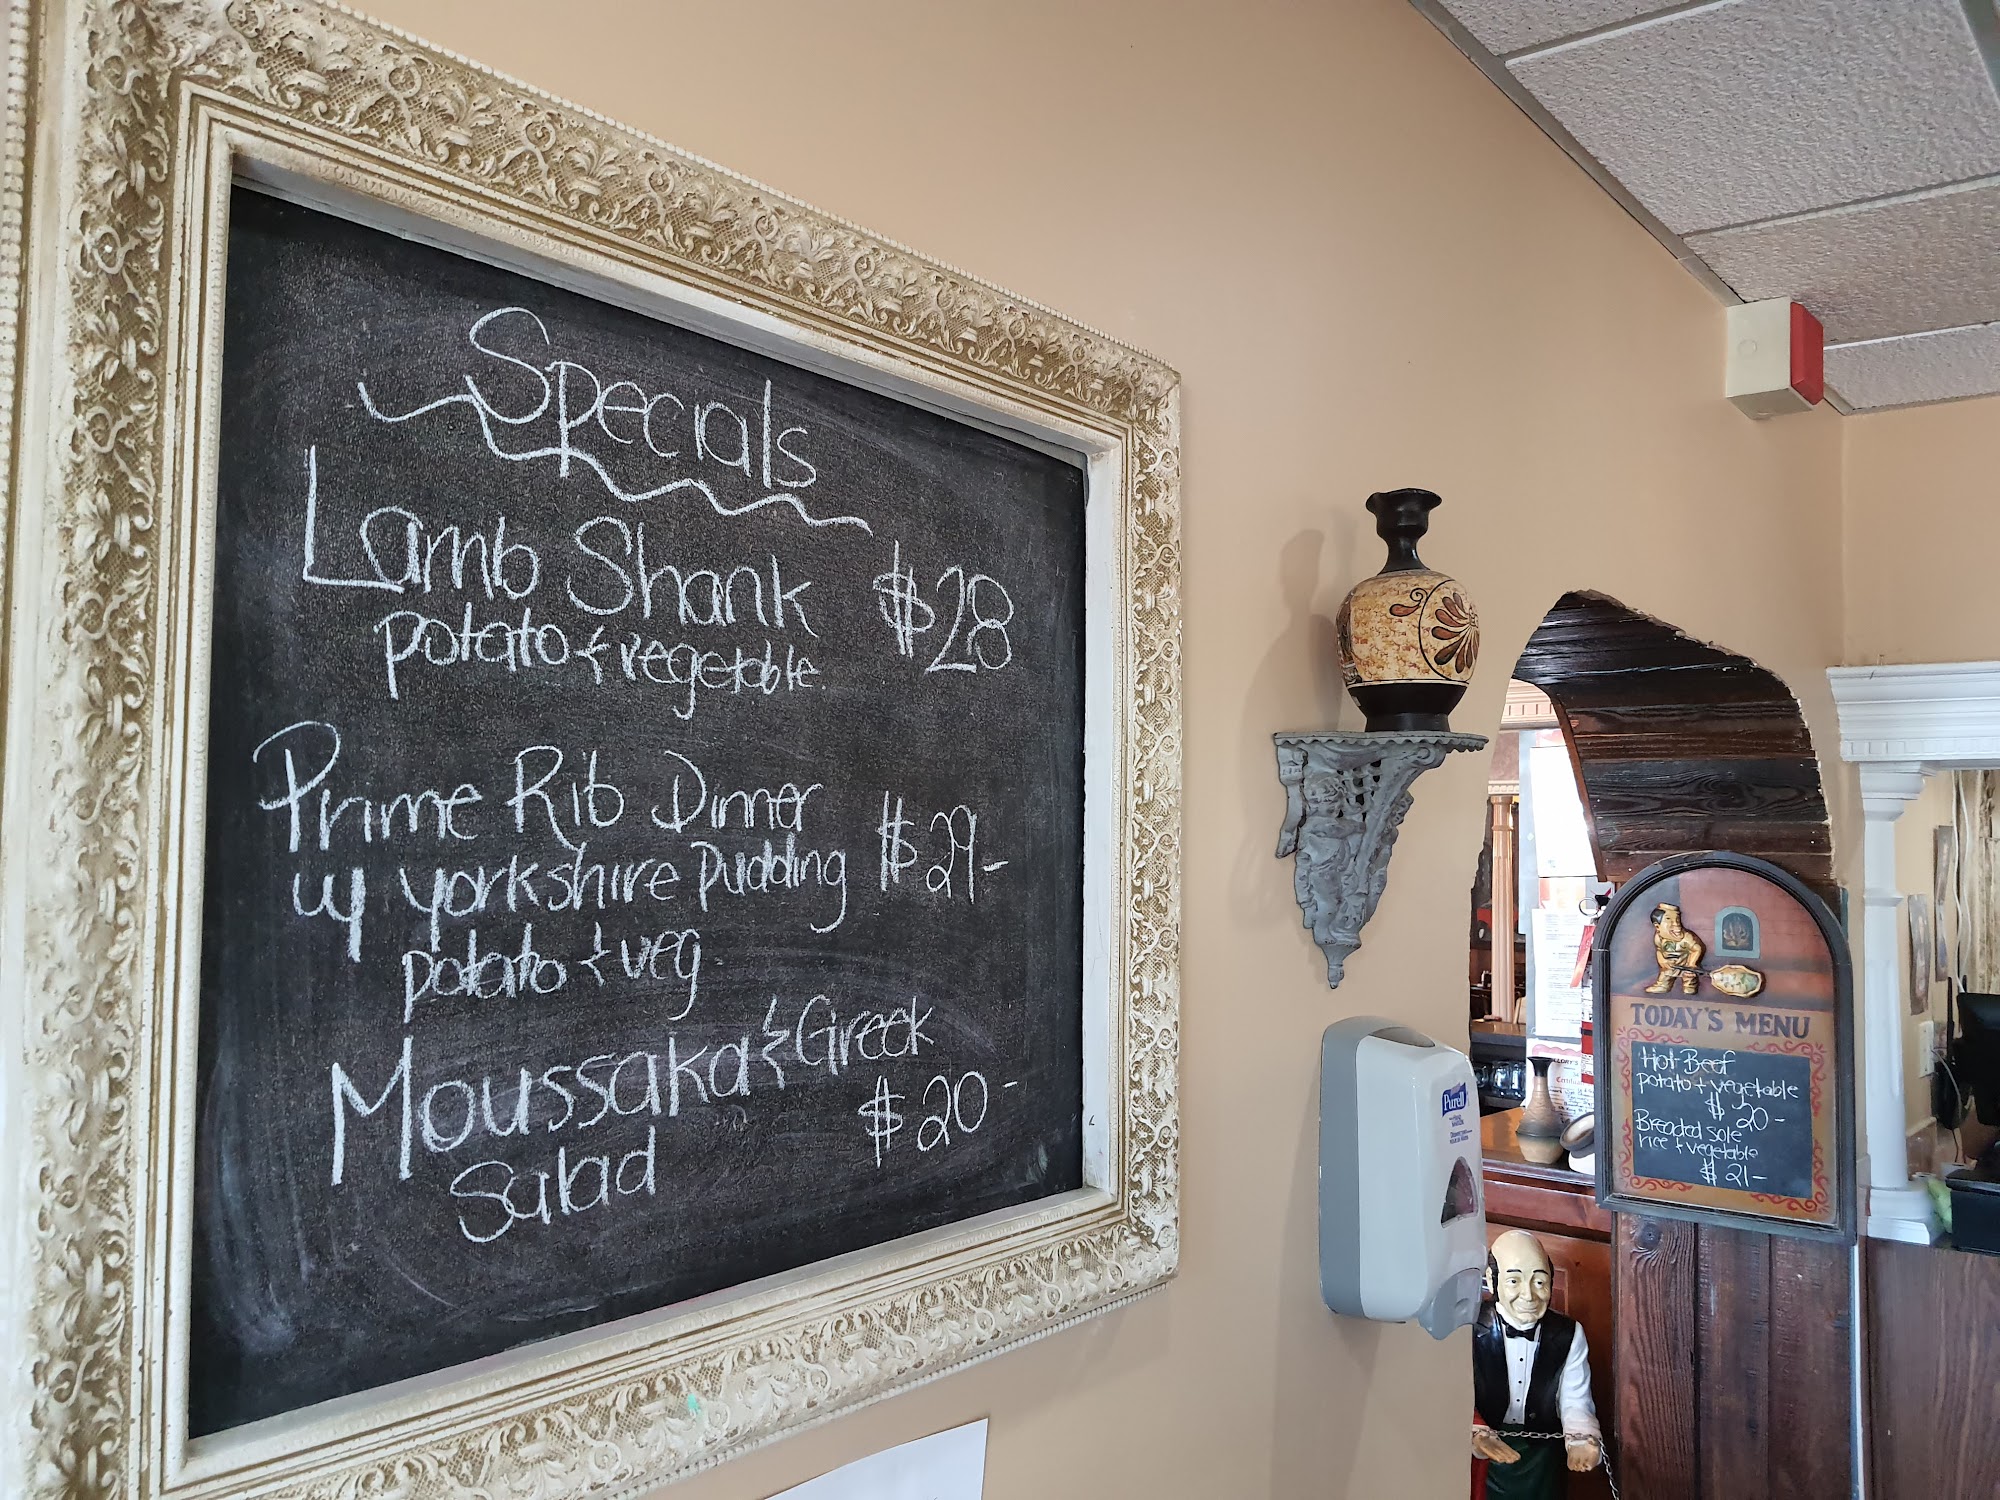 Specials
Lamb Shank $28
potato & vegetable.
Prime Rib Dinner
w/ yorkshire pudding $29-
potato & veg
Moussaka & Greek
Salad $20-
Purell
TODAY'S MENU
Hot Beef
potato & vegetable
$20-
Breaded sole
rice & vegetable
$21-